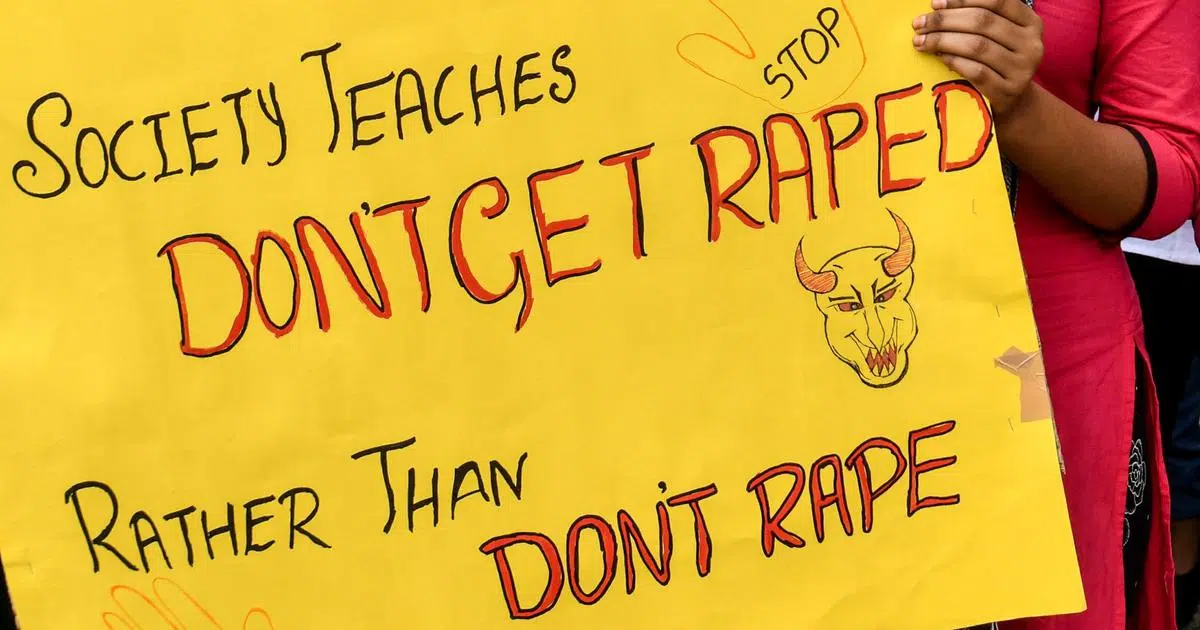 STOP
SOCIETY TEACHES
DON'T GET RAPED
RATHER THAN
DON'T RAPE